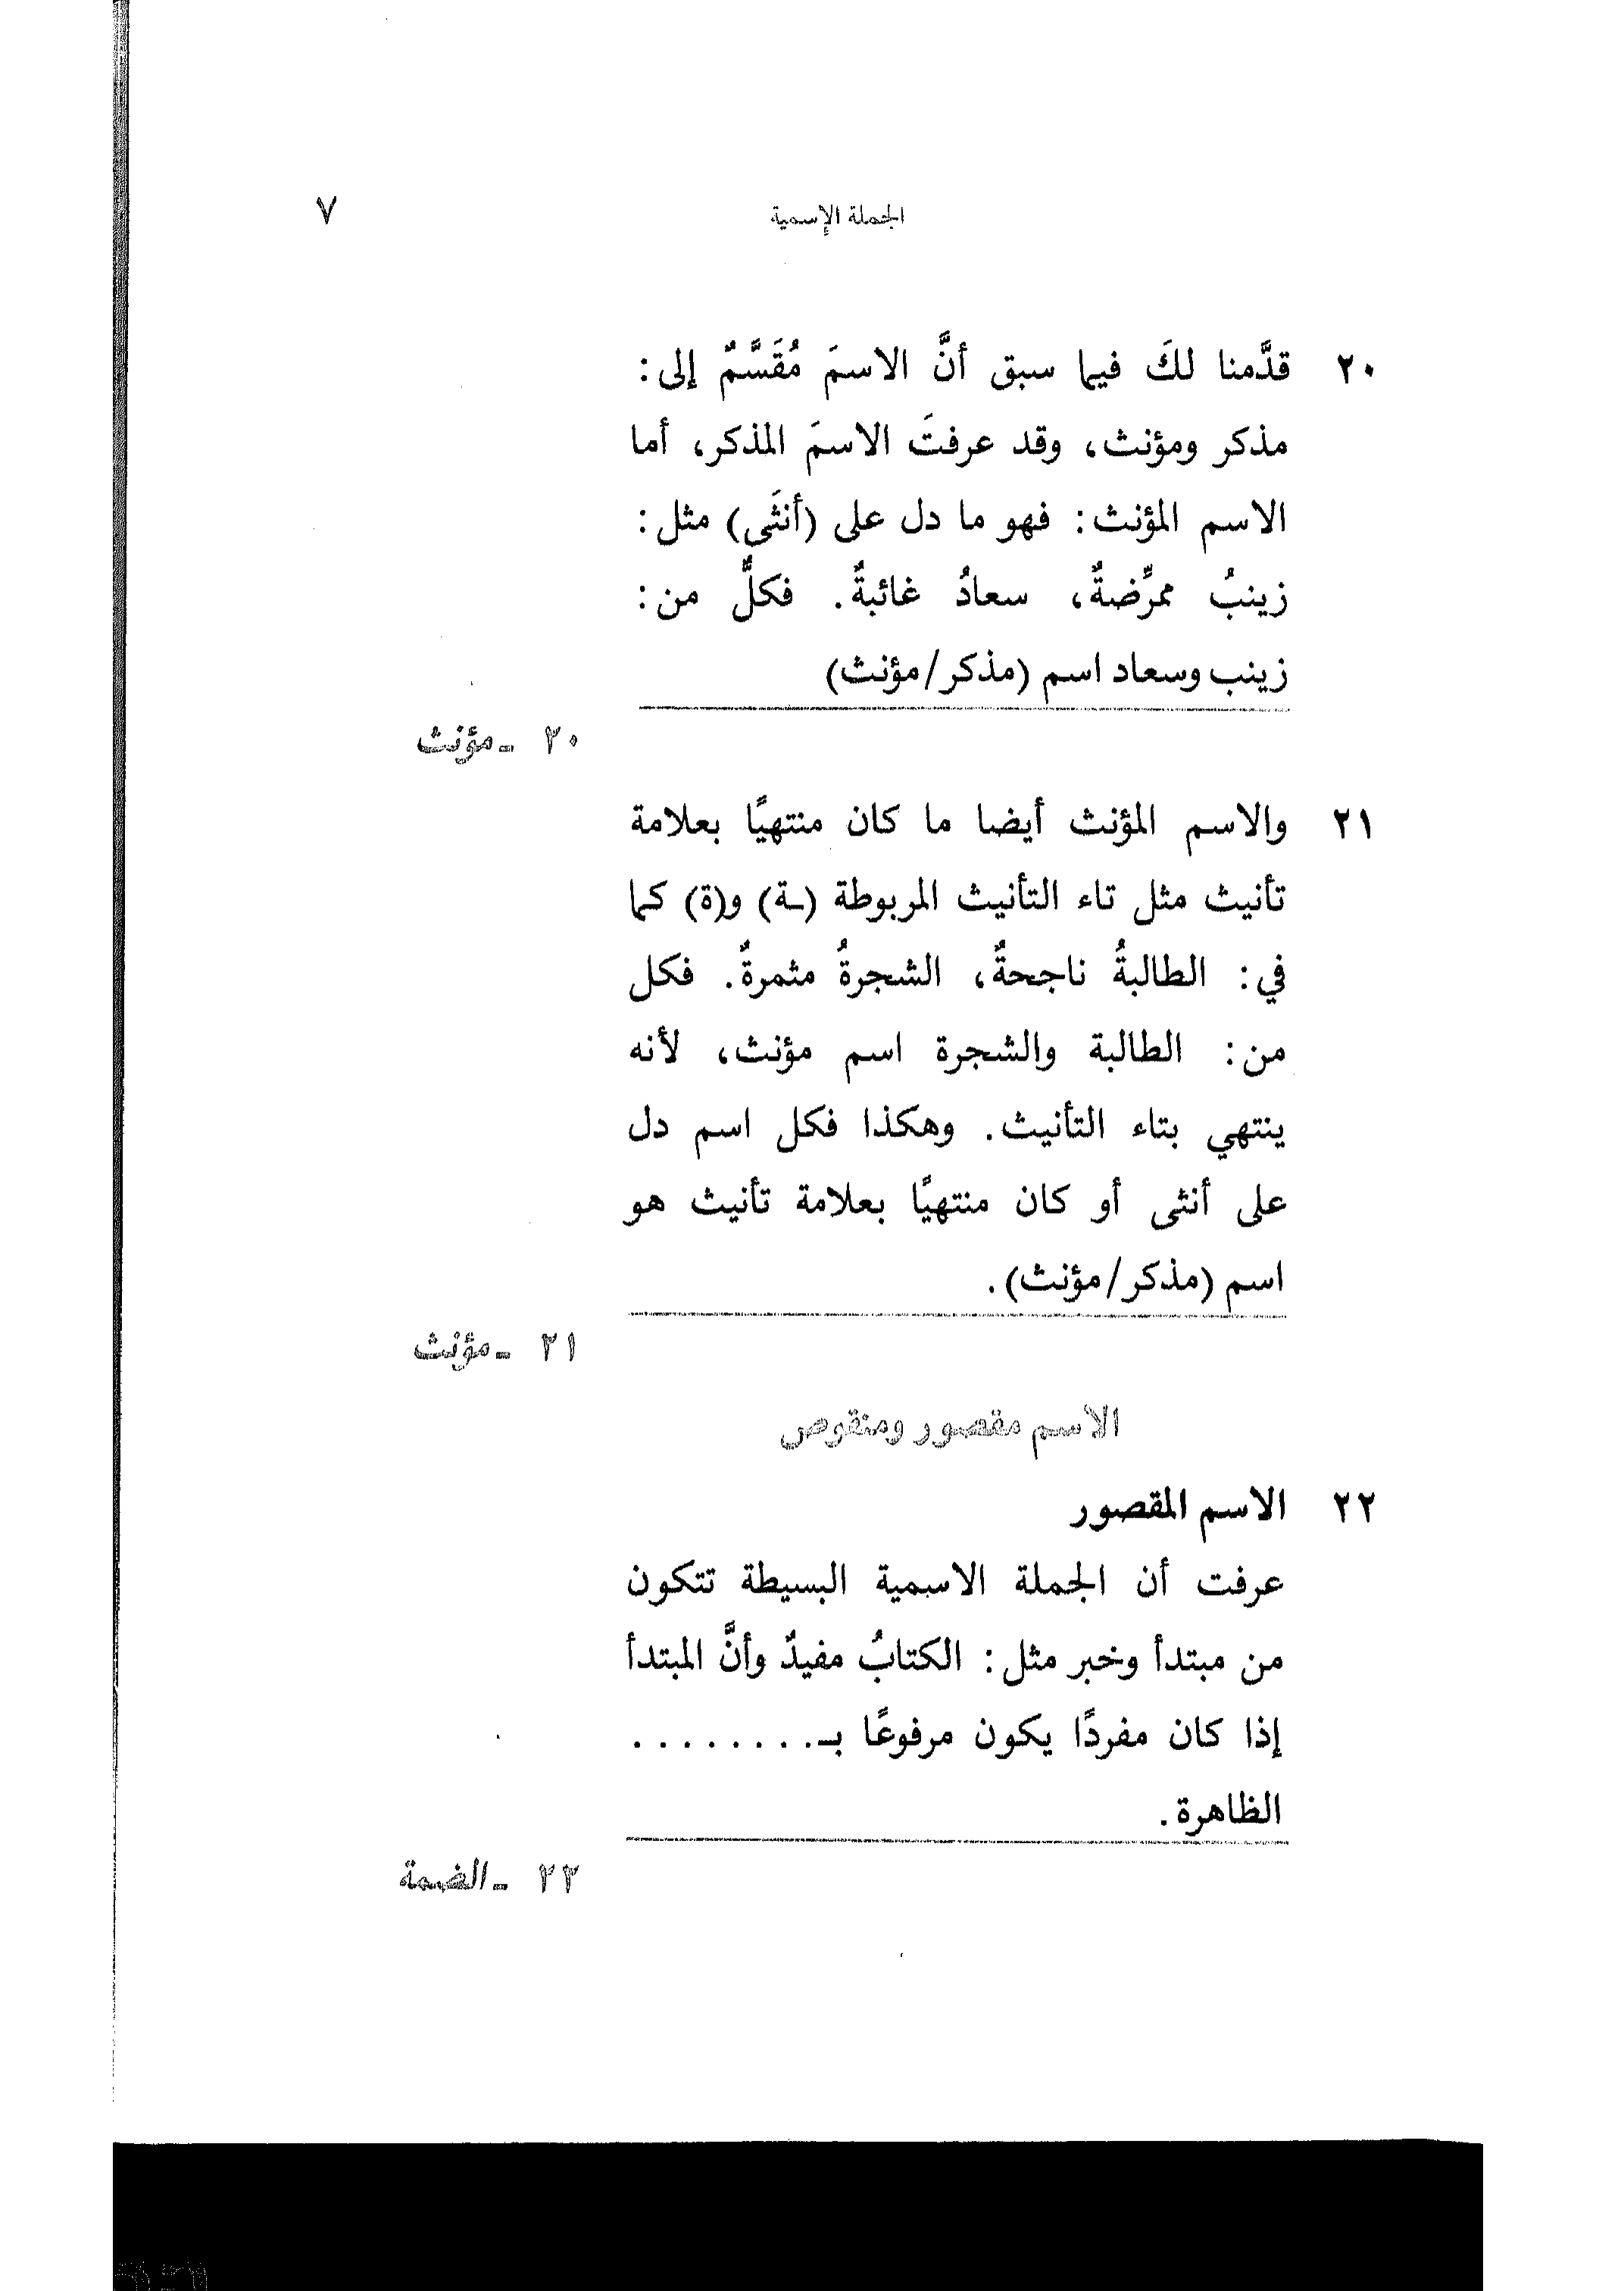 الجملة الإسمية ٧
٢٠ قدَّمنا لكَ فيما سبق أنَّ الاسمَ مُقَسَّمٌ إلى:
مذكر ومؤنث، وقد عرفتَ الاسمَ المذكر، أما
الاسم المؤنث: فهو ما دل على (أنثَى) مثل:
زينبُ ممرِّضةٌ، سعادُ غائبةٌ. فكلٌّ من:
زينب وسعاد اسم (مذكر/مؤنث)
٢٠ ـ مؤنث
٢١ والاسم المؤنث أيضا ما كان منتهيًا بعلامة
تأنيث مثل تاء التأنيث المربوطة (ـة) و(ة) كما
في: الطالبةُ ناجحةٌ، الشجرةُ مثمرةٌ. فكل
من: الطالبة والشجرة اسم مؤنث، لأنه
ينتهي بتاء التأنيث. وهكذا فكل اسم دل
على أنثى أو كان منتهيًا بعلامة تأنيث هو
اسم (مذكر/مؤنث).
٢١ ـ مؤنث
الاسم مقصور ومنقوص
٢٢ الاسم المقصور
عرفت أن الجملة الاسمية البسيطة تتكون
من مبتدأ وخبر مثل: الكتابُ مفيدٌ وأنَّ المبتدأ
إذا كان مفردًا يكون مرفوعًا بـ........
الظاهرة.
٢٢ ـ الضمة